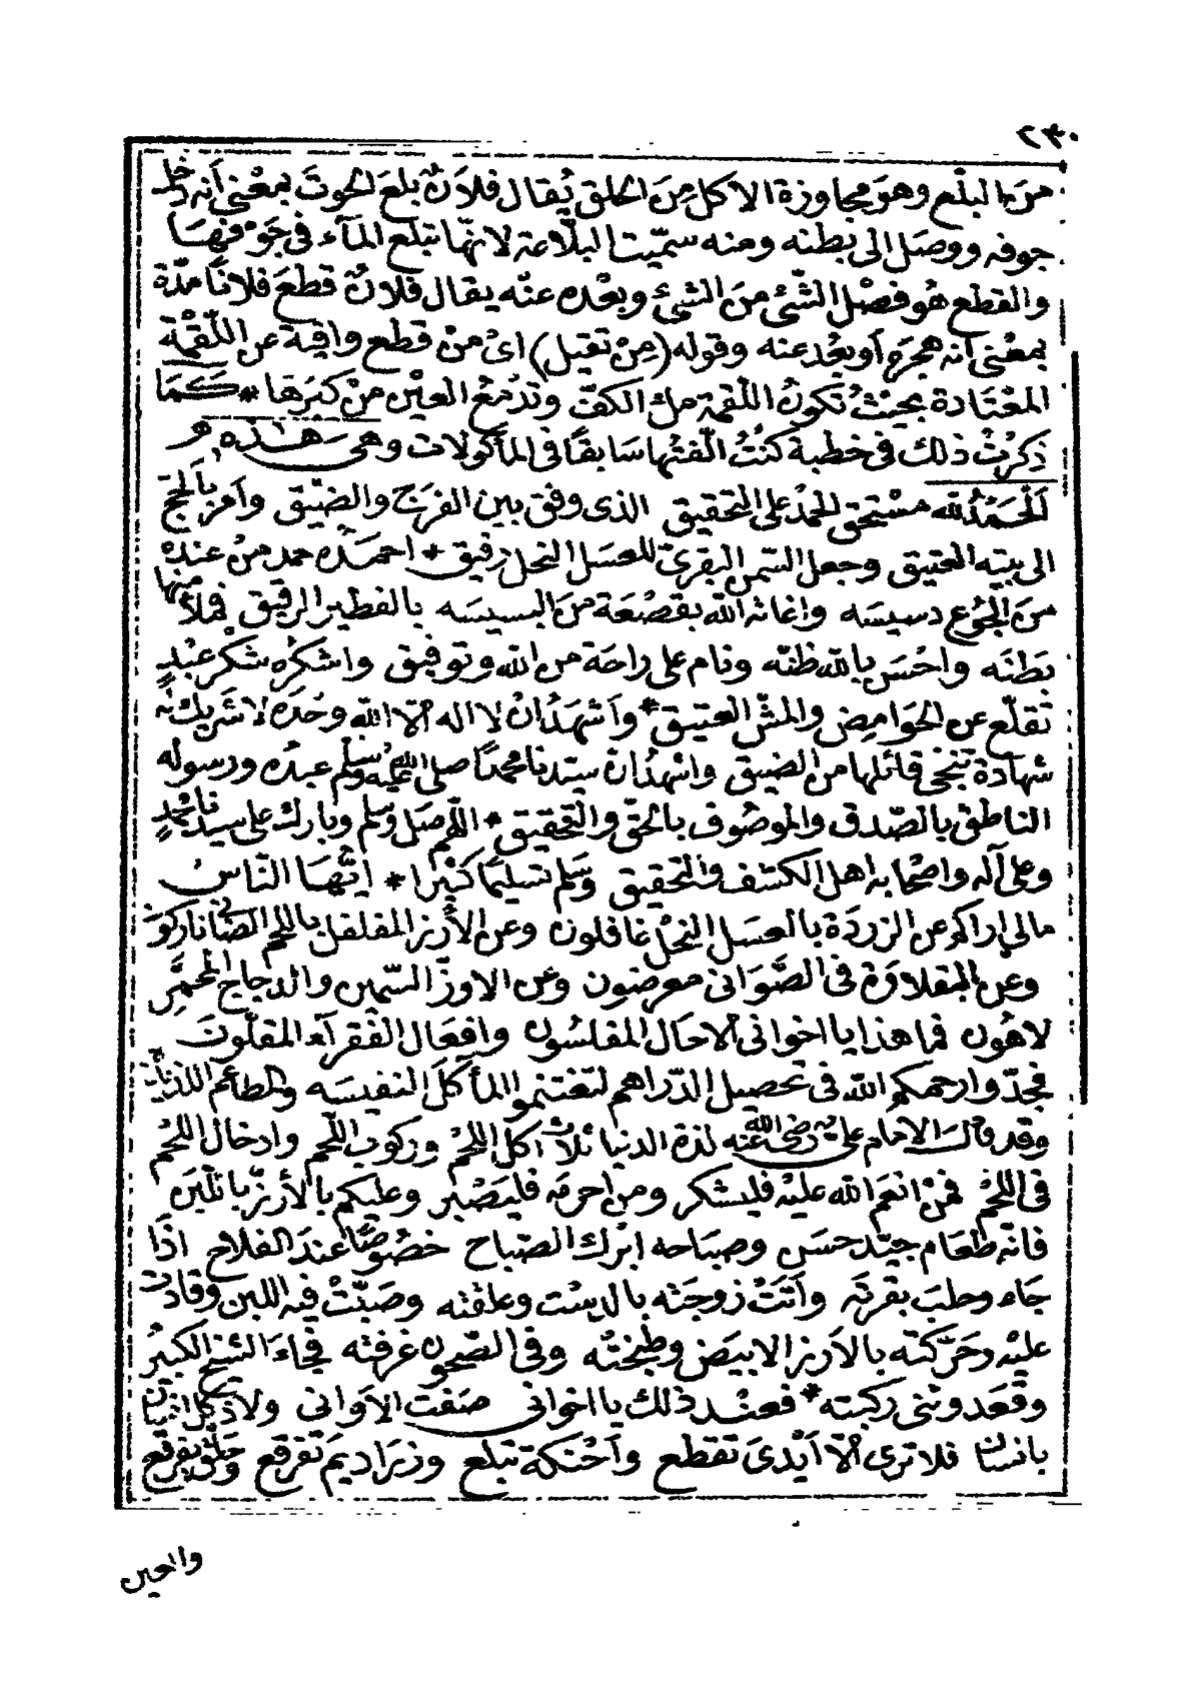 ٢٣٠
من البلع وهو مجاوزة الاكل من الحلق يُقال فلانٌ بلع الحوتَ بمعْنى أنه دخل
جوفه ووصل الى بطنه ومنه سمّيت البلّاعة لانهّا تبلع المآء فى جوفها
والقطع هُو فصْل الشّئ منَ الشئ وبعْده عنّه يقال فلانٌ قطعَ فلانًا مدّة
بمعْنى أنه هجره أو بعُد عنه وقوله (مِنْ تقيل) اىْ منْ قطع وافية عن اللّقمْة
المعْتادة بحيثُ تكونُ اللّقمة ملء الكفّ وتدْمَعُ العيْن منْ كبَرها * كَمَا
ذكرْتُ ذلك فى خطبة كنْتُ الّفتُها سَابقًا فى المأكولات وهى هَذه
اَلْحَمْدُ لله مسْتحق الحمْد على التحقيق الذى وفق بين الفرَج والضيّق وأمر بالحجّ
الى بيته العتيق وجعل السّمن البقرىّ للعسَل النحل رفيق * احمَدُه حمد منْ عندهُ
منَ الجُوع دسيسَه واغاثه الله بقصْعَة منَ البسيسَه بالفطير الرقيق فملأ منها
بَطنَه واحْسَن بالله ظنّه ونام على راحَة من الله وتوفيق واشكرُه شكر عبْدٍ
تقلّع عن الحوَامِض والمشّ العتيق * وأشهَدُ انْ لا اله الّا الله وحْدَه لا شريك له
شهادة تنجّى قائلها من الضيق واشهدُ ان سيّدنا محمدًا صلى الله عليه وسلم عبدُه ورسوله
الناطق بالصّدق والموصُوف بالحقّ والتحقيق * اللهمّ صَل وسلم وبارك على سيّدنا محمّدٍ
وعلى آله واصْحابه اهل الكشف والتحقيق وسَلم تسليمًا كثيْرا * ايّهَا النّاسُ
مالى اراكم عن الزردَة بالعسَل النحْل غافلون وعن الأرْز المفلفل باللحم الضّانى تاركون
وعن البقلاوَة فى الصّوَانى معرضون وعن الاوزّ السّمين والدجاج المحمَّر
لاهُون فما هذا يا اخوانى الّا حال المفلسُون وافعَال الفقرآء المقلّون
فجدّوا رحمكم الله فى تحصيل الدّراهم لتغتنمو المأكلَ النفيسَه والمطاعم اللذيذه
وقد قالَ الامام علىّ رضى الله عنه لذة الدنيا ثلاث أكل اللحْم وركوب اللّحم وادخال اللحْم
فى اللحْم فمنْ انعَم الله عليْه فليشكر ومن احرمَه فليَصْبر وعليكم بالأرزّ باللّبن
فانّه طعَام جيّد حسَن وصبَاحه ابْرك الصّباح خصُوصًا عندَ الفلاح اذَا
جاء وحلبَ بقرته وأتَتْ زوجَتْه بالدست وعلقته وصَبّتْ فيه اللبن وقادت
عليْه وحَرّكتْه بالأرز الابيَض وطبختْه وفى الصّحون غرفتْه فجاءَ الشيْخ الكبيْر
وقعَد وثنى ركبته * فعنْد ذلك يا اخوانى صَفتْ الأوانى ولاذ كل انسان
بانسان فلا ترى الّا أيْدىَ تقطع وأحْنكة تبلع وزرَاديمَ تفرقع وحلق يقرقع
والعين